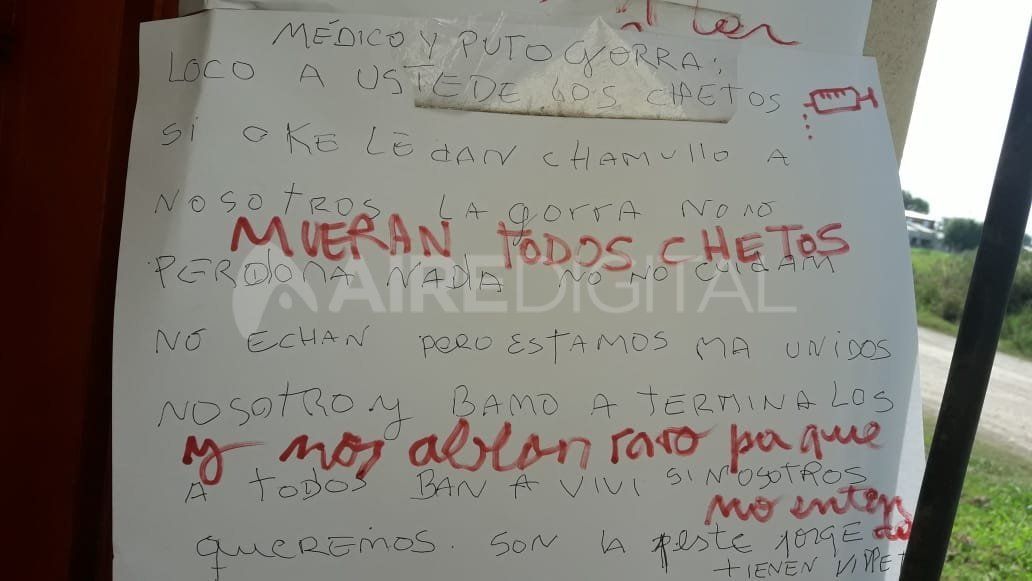 MÉDICO Y PUTO GORRA:
LOCO A USTEDE LOS CHETOS
SI O KE LE dAN CHAMULLO A
NOSOTROS LA gORRA NO NO
MUERAN TODOS CHETOS
PERDONA NADA NO NO CUIDAM
AIREDIGITAL
NO ECHAN pERO ESTAMOS MA UNIDOS
NOSOTRO y BAMO A TERMINA LOS
y nos ablan raro pa que
A TODOS BAN A VIVI SI NOSOTROS
no enten
do
queREMOS. SON LA peste jORGE
TIENEN